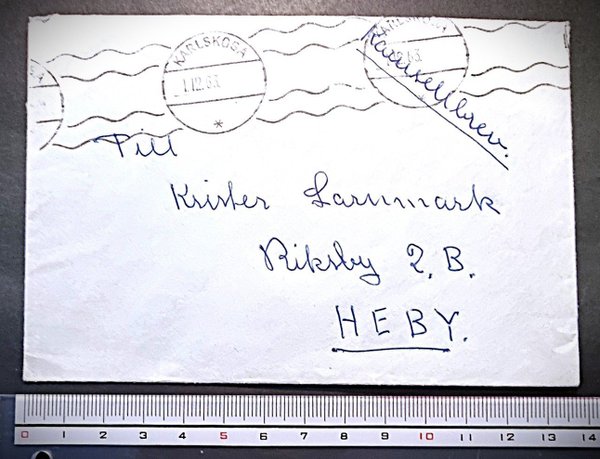 KARLSKOGA
-1.12.63
KARLSKOGA
Karusellbrev.
Till
Krister Larnmark
Riksby 2, B.
HEBY.
0 1 2 3 4 5 6 7 8 9 10 11 12 13 14